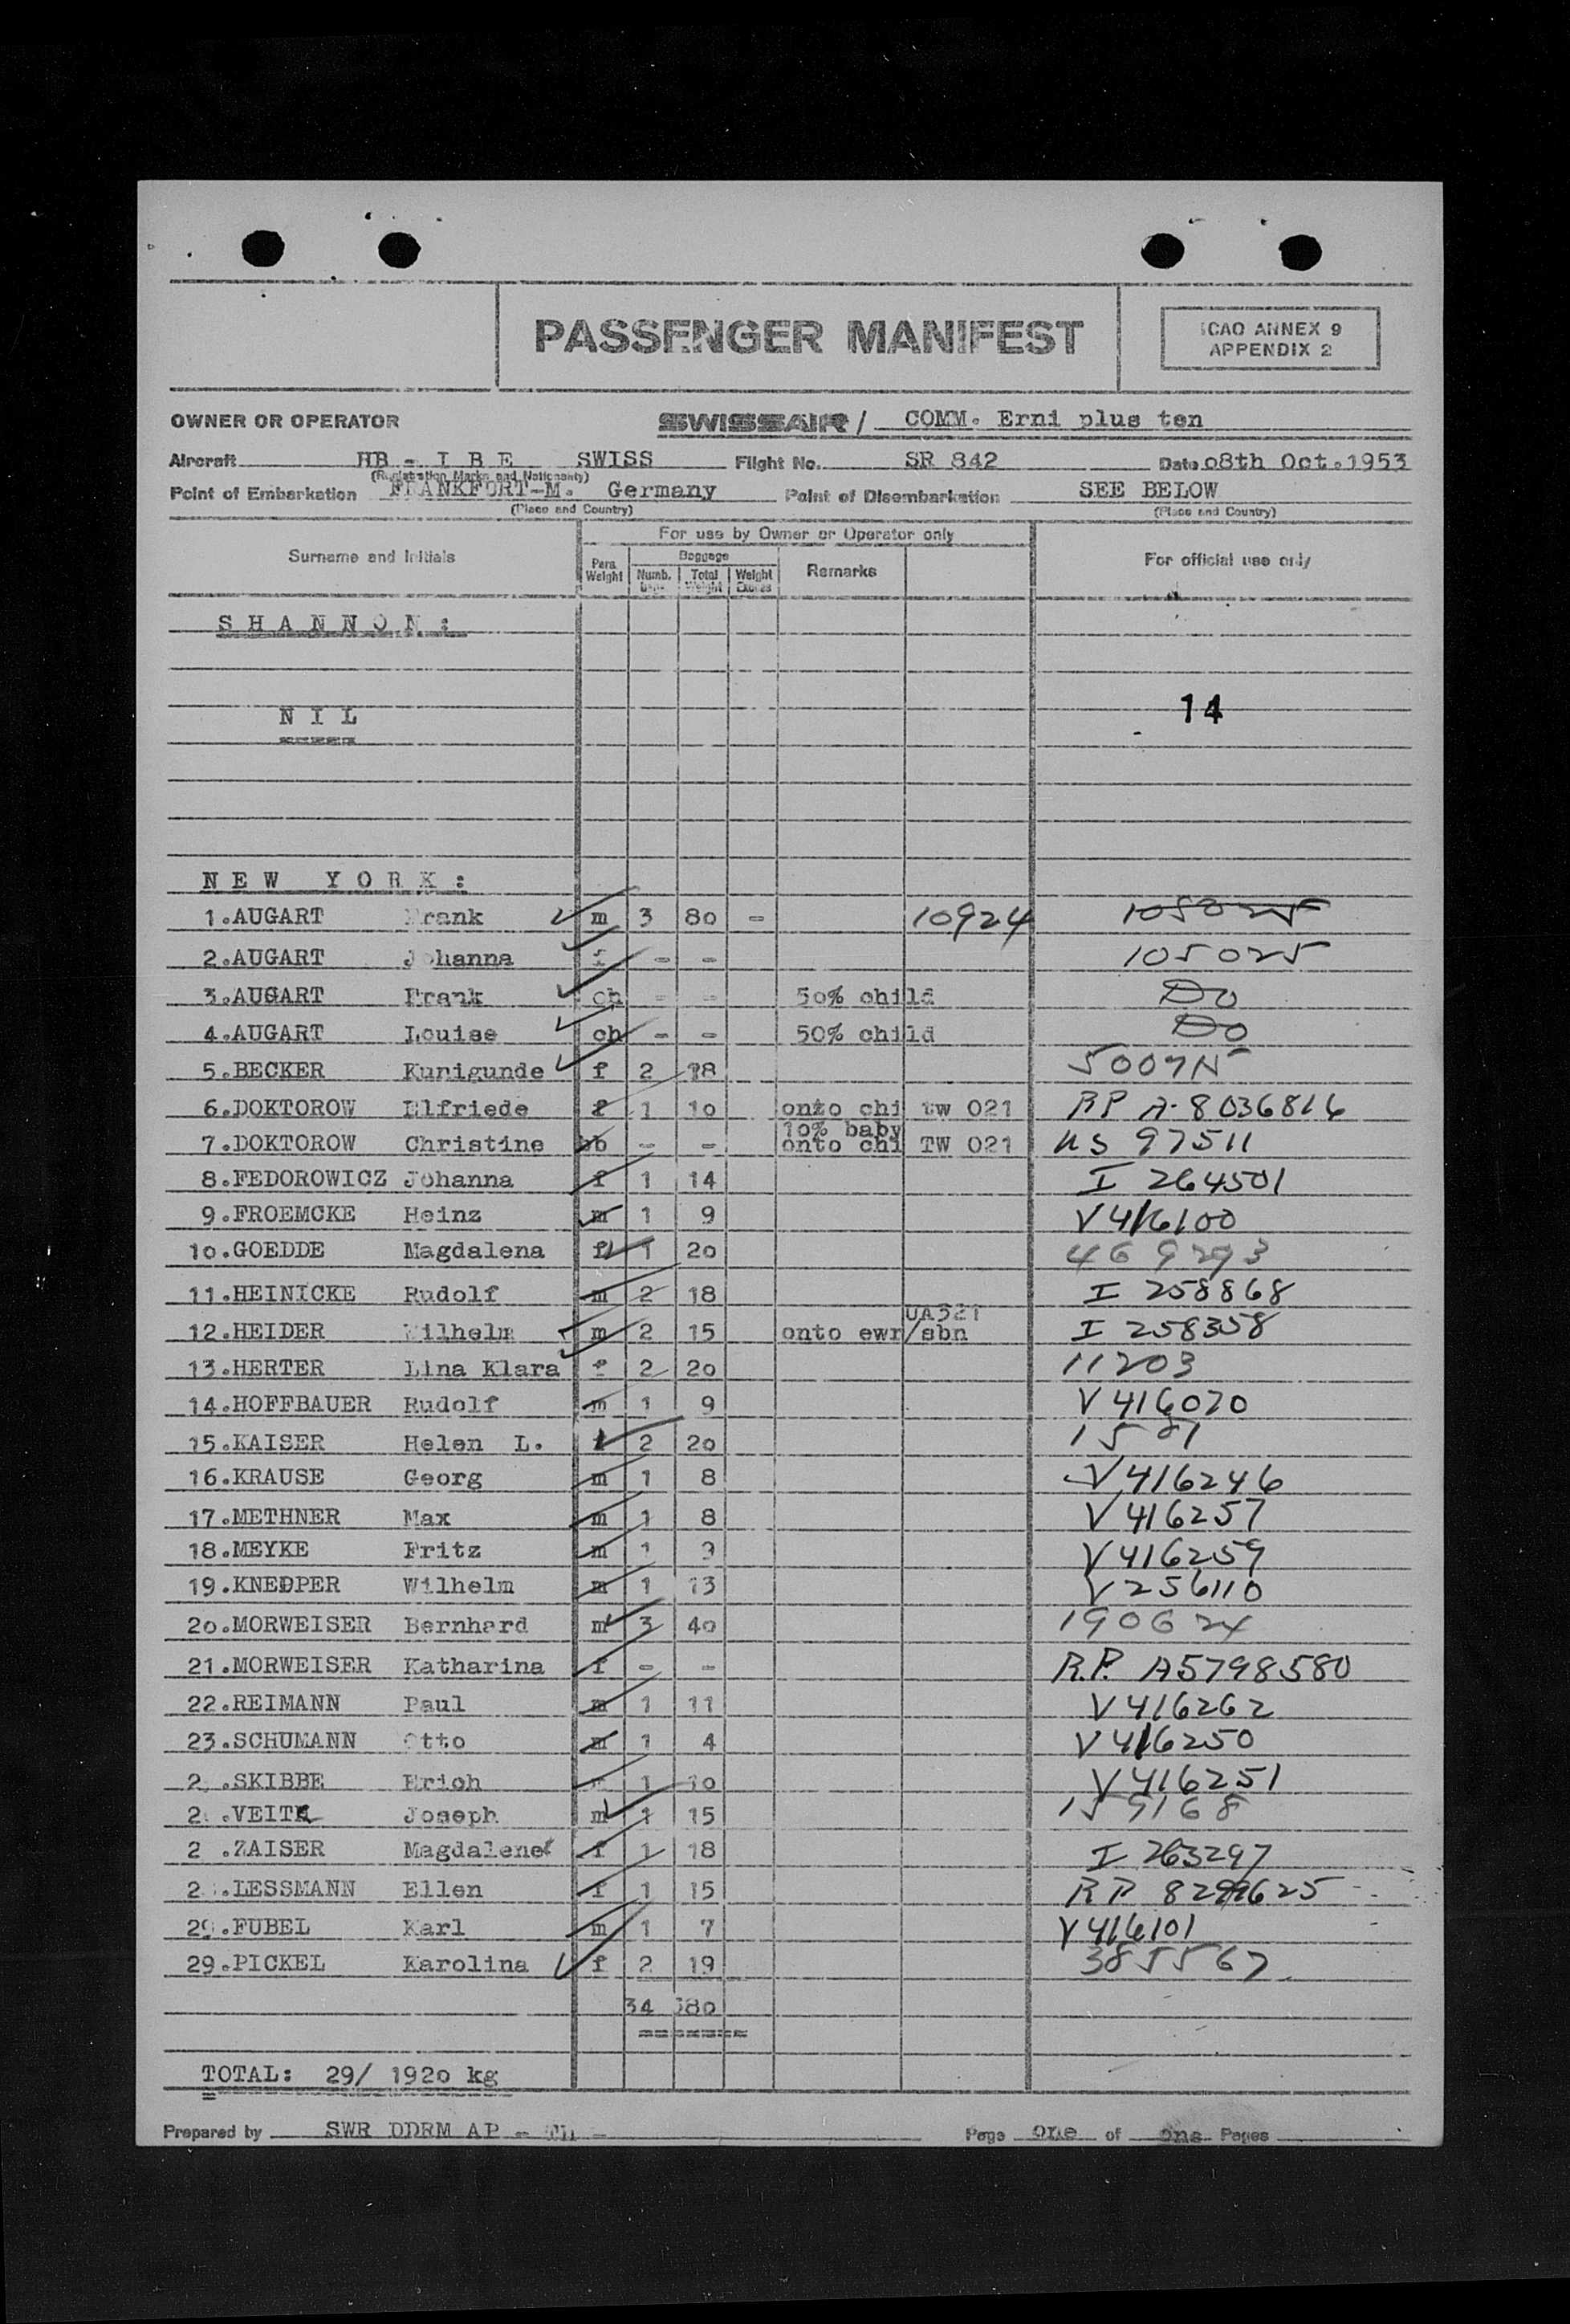 PASSENGER MANIFEST
ICAO ANNEX 9
APPENDIX 2
OWNER OR OPERATOR SWISSAIR / COMM. Erni plus ten
Aircraft HB - I B E SWISS Flight No. SR 842 Date 08th Oct. 1953
(Registration Marks and Nationality)
Point of Embarkation FRANKFURT-M. Germany Point of Disembarkation SEE BELOW
(Place and Country) (Place and Country)
For use by Owner or Operator only
Surname and Initials Pers. Weight Baggage Numb. Total Weight Weight Excess Remarks For official use only
S H A N N O N :
N I L 14
N E W Y O R K :
1.AUGART Frank m 3 80 - 10924 105025
2.AUGART Johanna f - - 105025
3.AUGART Frank ch - - 50% child Do
4.AUGART Louise ch - - 50% child Do
5.BECKER Kunigunde f 2 18 5007N
6.DOKTOROW Elfriede f 1 10 onto chi tw 021 RP A-8036816
10% baby
7.DOKTOROW Christine bb - - onto chi TW 021 US 97511
8.FEDOROWICZ Johanna f 1 14 I 264501
9.FROEMCKE Heinz m 1 9 V416100
10.GOEDDE Magdalena f 1 20 469293
11.HEINICKE Rudolf m 2 18 I 258868
UA321
12.HEIDER Wilhelm m 2 15 onto ewr/sbn I 258358
13.HERTER Lina Klara f 2 20 11203
14.HOFFBAUER Rudolf m 1 9 V416020
15.KAISER Helen L. f 2 20
16.KRAUSE Georg m 1 8 V416246
17.METHNER Max m 1 8 V416257
18.MEYKE Fritz m 1 9 V416259
19.KNEPPER Wilhelm m 1 13 V256110
20.MORWEISER Bernhard m 3 40 190624
21.MORWEISER Katharina f - - R.P. A5798580
22.REIMANN Paul m 1 11 V416262
23.SCHUMANN Otto m 1 4 V416250
2 .SKIBBE Erich m 1 10 V416251
2 .VEITH Joseph m 1 15 159168
2 .ZAISER Magdalene f 1 18 I 263297
2 .LESSMANN Ellen f 1 15 RP
29.FUBEL Karl m 1 7 V416101
29.PICKEL Karolina f 2 19 385567
34 380
TOTAL: 29/ 1920 kg
Prepared by SWR DDRM AP - Page one of one Pages